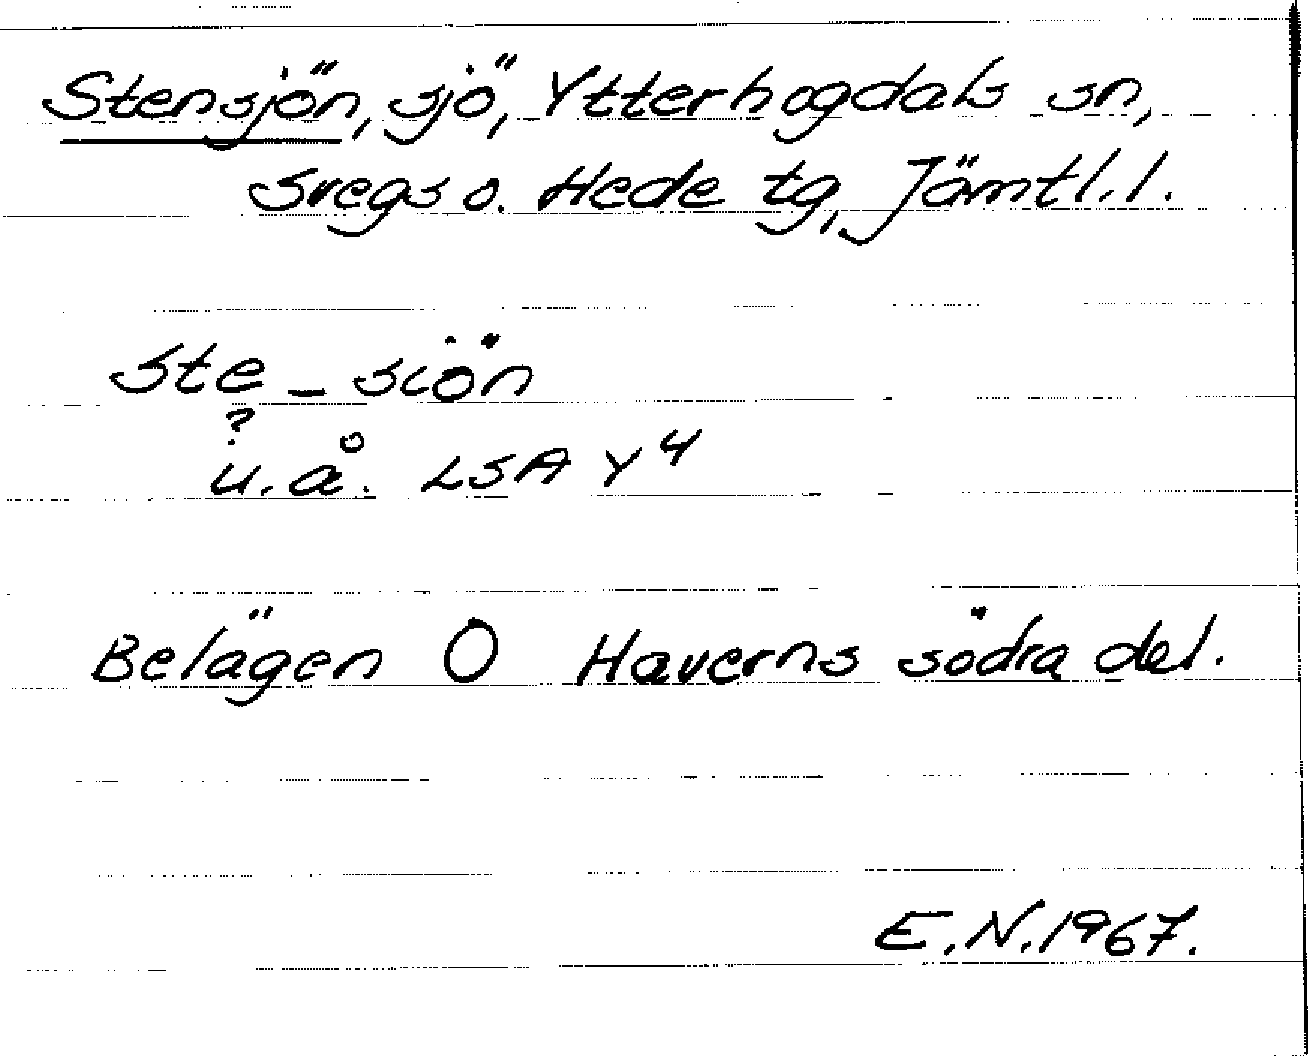 Stensjön, sjö, Ytterhogdals sn,
Svegs o. Hede tg, Jämtl. l.
Ste - siön
?
u.å. LSA Y 4
Belägen Ö Haverns södra del.
E.N. 1967.